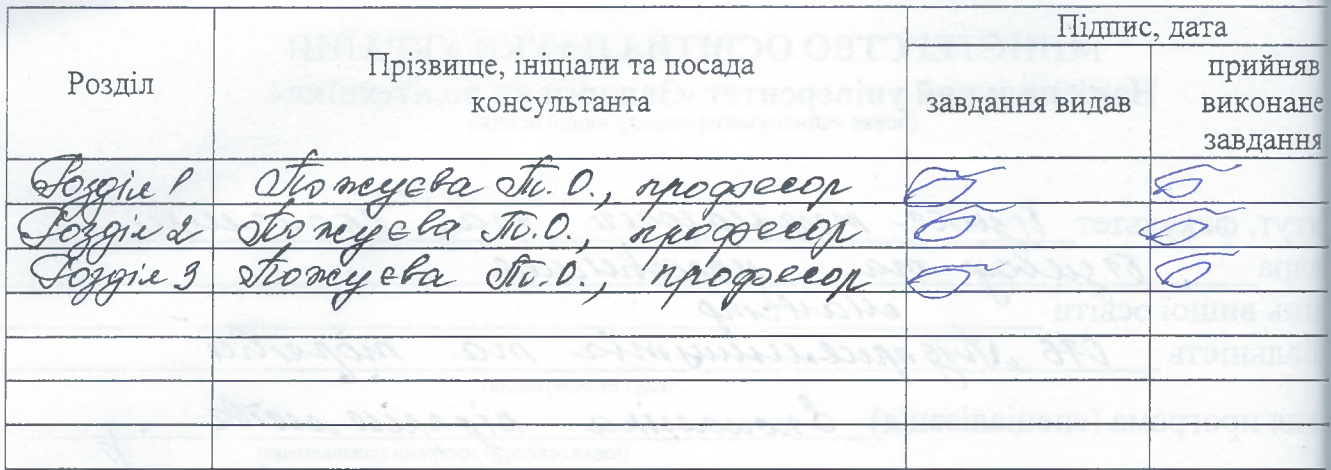 Розділ
Прізвище, ініціали та посада
консультанта
Підпис, дата
завдання видав
прийняв
виконане
завдання
Розділ 1 Пожуєва Т.О., професор
Розділ 2 Пожуєва Т.О., професор
Розділ 3 Пожуєва Т.О., професор